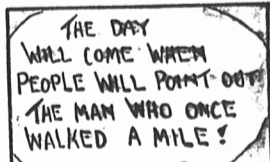 THE DAY
WILL COME WHEN
PEOPLE WILL POINT OUT
THE MAN WHO ONCE
WALKED A MILE!